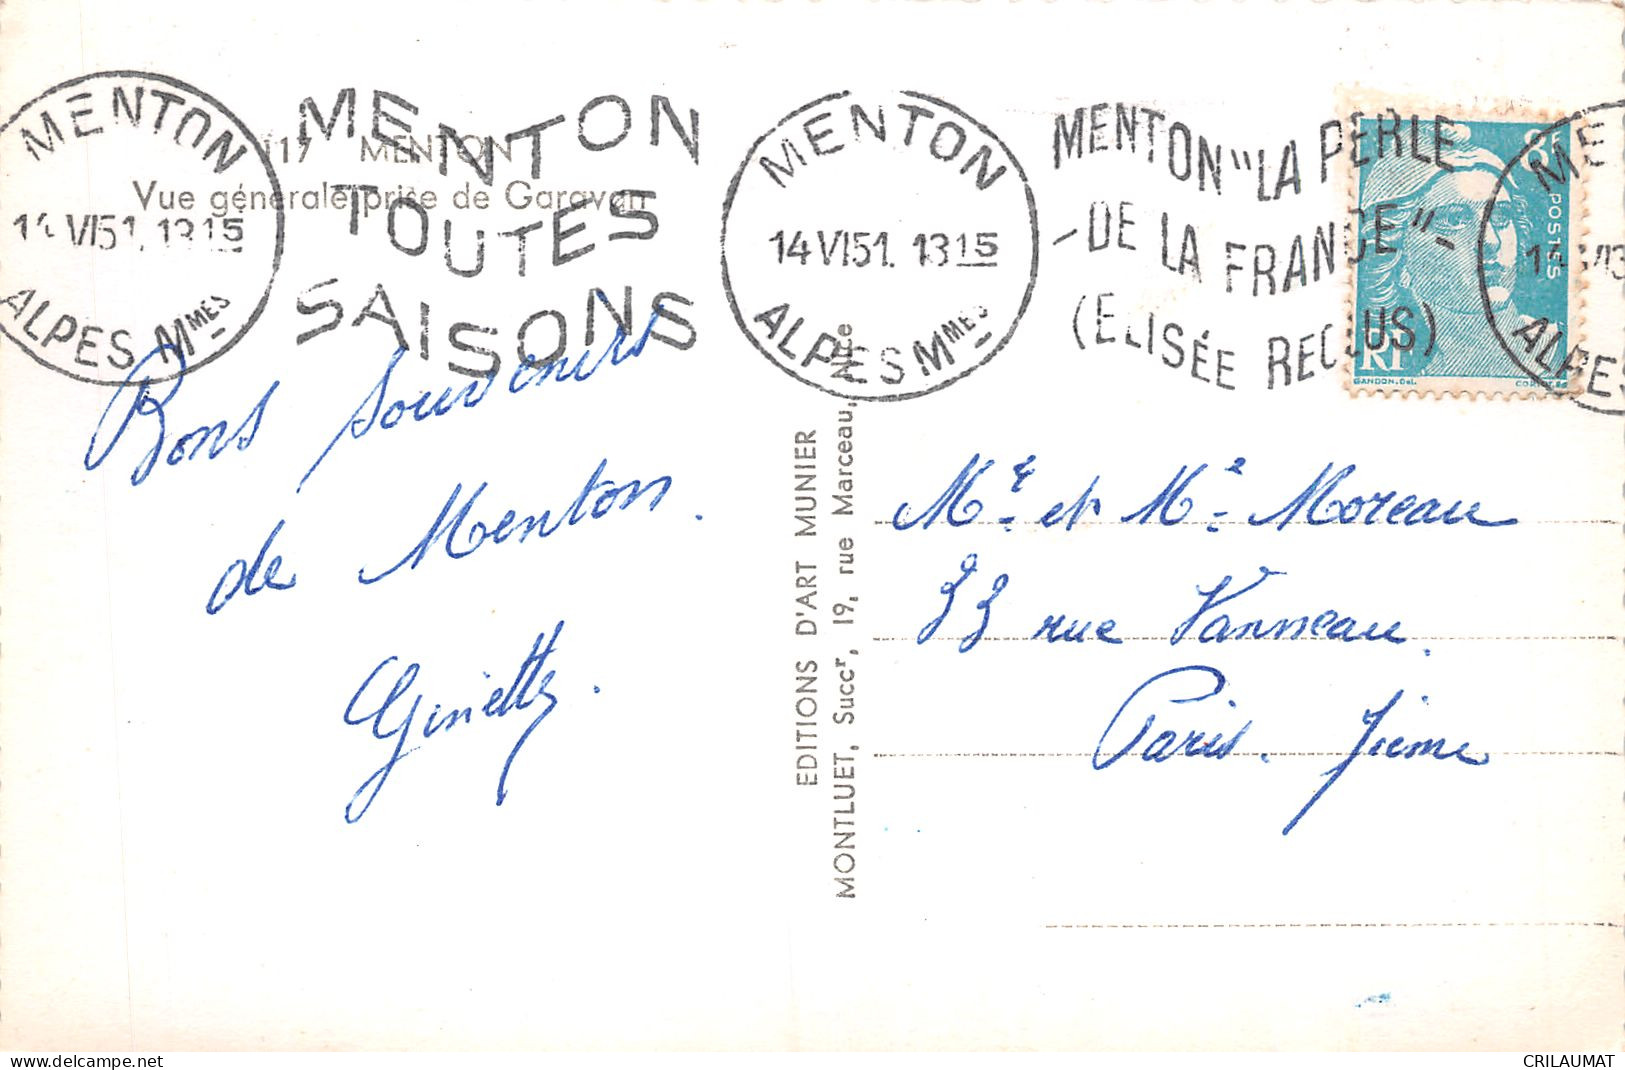 117 MENTON
Vue générale prise de Garavan
MENTON
14 VI 51. 1315
ALPES Mmes
MENTON
TOUTES
SAISONS
MENTON
14 VI 51. 1315
ALPES Mmes
MENTON "LA PERLE
-DE LA FRANCE"-
(ELISÉE RECLUS)
8F
POSTES
RF
GANDON.Del.
ME
ALPES
Bons souvenirs
de Menton.
Ginette.
EDITIONS D'ART MUNIER
MONTLUET, Succr, 19, rue Marceau, Nice
Mr et Me Moreau
33 rue Vanneau.
Paris. 7ième
www.delcampe.net
CRILAUMAT